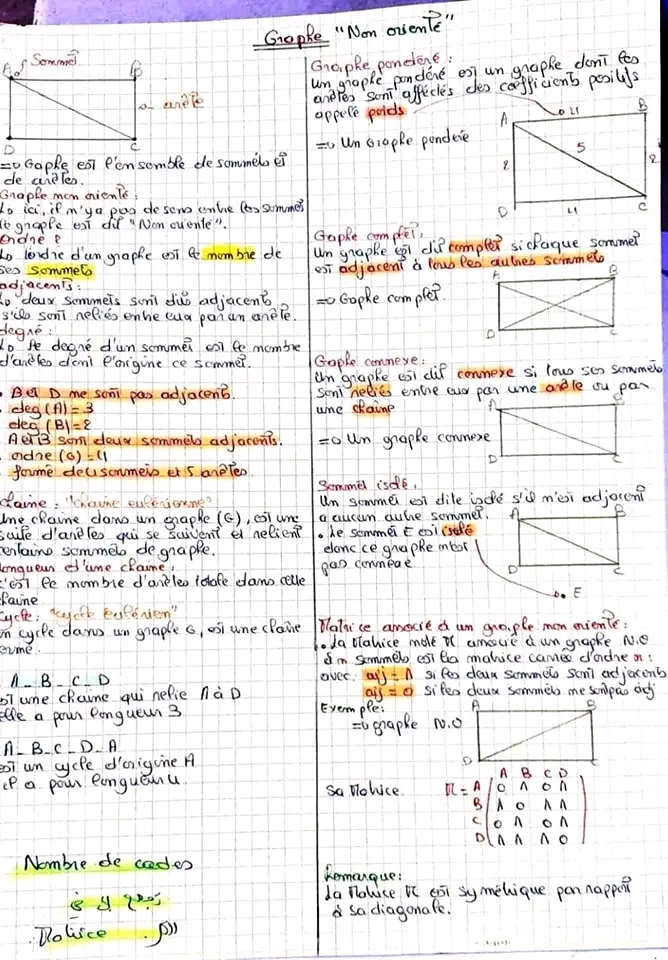 Graphe "Non orienté"
Sommet
A B
arête
D C
=> Gaphe est l'ensemble de sommets et
de arêtes.
Graphe non orienté :
↳ ici, il n'ya pas de sens entre les sommet
le graphe est dit "Non oriente".
Ordre :
↳ l'ordre d'un graphe est le nombre de
ses sommets
adjacents :
↳ deux sommets sont dits adjacents
s'ils sont reliés entre eux par un arête.
degré :
↳ le degré d'un sommet est le nombre
d'arêtes dont l'origine ce sommet.
• B et D ne sont pas adjacents.
• deg (A) = 3
deg (B) = 2
• A et B sont deux sommets adjacents.
• ordre (G) = 4
• formé de 4 sommets et 5 arêtes.
chaine : "chaine eulérienne"
Une chaine dans un graphe (G), est une
suite d'arêtes qui se suivent et relient
certains sommets de graphe.
longueur d'une chaine :
c'est le nombre d'arêtes totale dans cette
chaine
Cycle : "cycle Eulérien"
un cycle dans un graphe G, est une chaine
fermé.
A - B - C - D
est une chaine qui relie A à D
elle a pour longueur 3
A - B - C - D - A
est un cycle d'origine A
il a pour longueur 4.
Nombre de
Matrice
Graphe pondéré :
un graphe pondéré est un graphe dont les
arêtes sont affectés des coefficients positifs
appelé poids
=> Un Graphe pondere
A 4 B
2 5 2
D 4 C
Gaphe complet :
Un graphe est dit complet si chaque sommet
est adjacent à tous les autres sommets
=> Gaphe complet.
A B
D C
Gaphe connexe :
Un graphe est dit connexe si tous ses sommets
sont reliés entre eux par une arête ou par
une chaine
=> Un graphe connexe
A B
D C
Sommet isolé.
Un sommet est dite isolé s'il n'est adjacent
a aucun autre sommet.
• le sommet E est isolé
donc ce graphe n'est
pas connexe
A B
D C
E
Matrice associé à un graphe non oriente :
• la Matrice noté M associé à un graphe N.O
à n sommets est la matrice carrée d'ordre n :
avec : aij = 1 si les deux sommets sont adjacents
aij = 0 si les deux sommets ne sont pas adj
Exemple :
=> graphe N.O
A B
D C
Sa Matrice
A B C D
M = A 0 1 0 1
B 1 0 1 1
C 0 1 0 1
D 1 1 1 0
Remarque :
la Matrice M est symétrique par rapport
à sa diagonale.